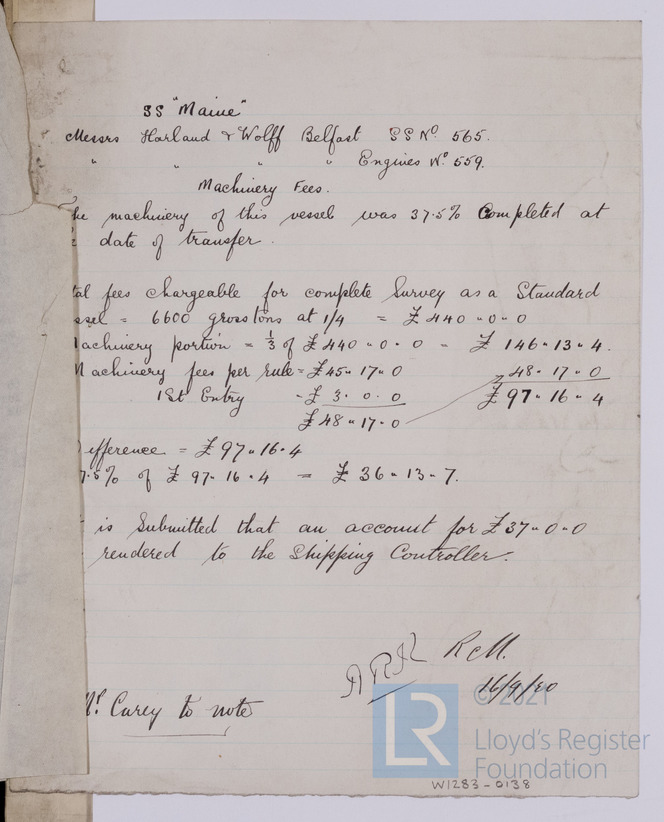 SS "Maine"
Messrs Harland & Wolff Belfast SS No. 565.
" " " " Engines No. 559.
Machinery Fees.
he machinery of this vessel was 37.5% Completed at
date of transfer.
tal fees chargeable for complete Survey as a Standard
ssel = 6600 gross tons at 1/4 = £440-0-0
achinery portion = 1/3 of £440-0-0 = £146-13-4.
Machinery fees per rule = £45-17-0 48-17-0
1st Entry - £3.0.0 £97-16-4
£48-17-0
ifference = £97-16-4
7.5% of £97-16-4 = £36-13-7.
is Submitted that an account for £37-0-0
rendered to the Shipping Controller.
RcM.
16/9/20
Mr. Carey to note
© 2021
LR
Lloyd's Register
Foundation
W1283-0138